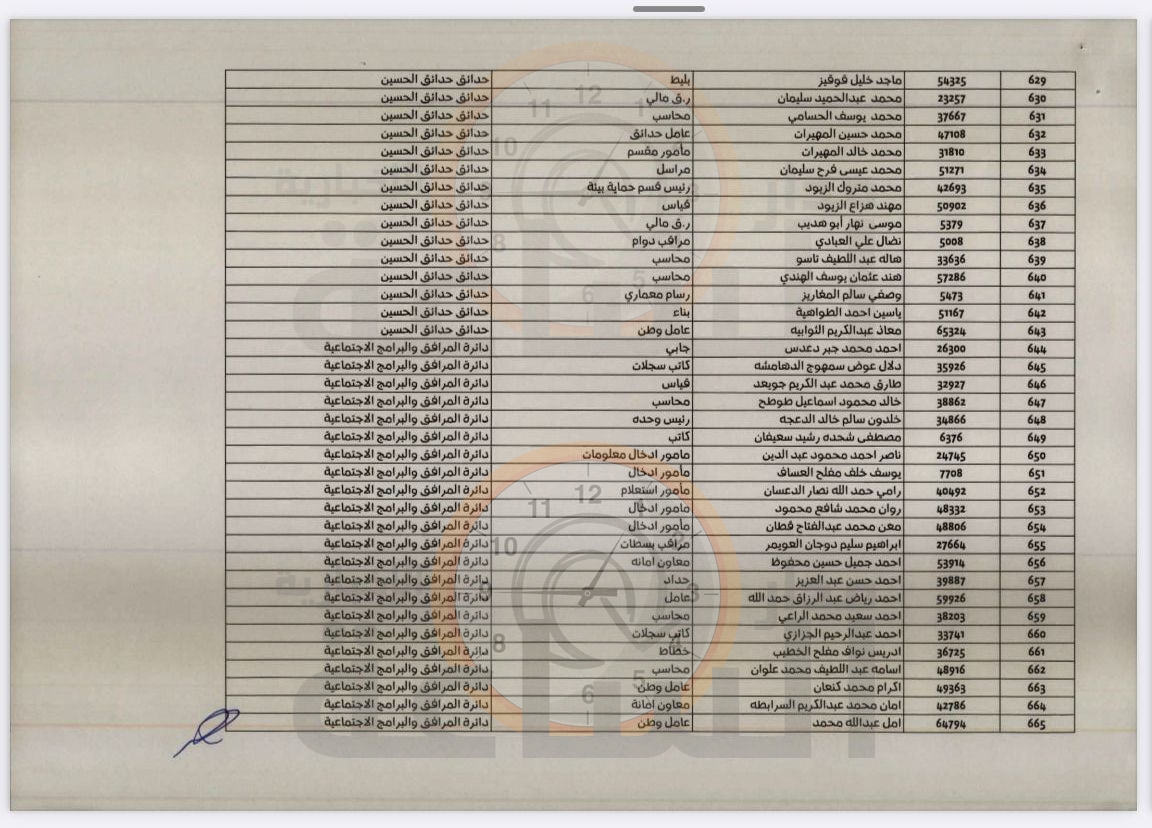 629 54325 ماجد خليل قوقيز بليط حدائق حدائق الحسين
630 23257 محمد عبدالحميد سليمان ر.ق مالي حدائق حدائق الحسين
631 37667 محمد يوسف الحسامي محاسب حدائق حدائق الحسين
632 47108 محمد حسين المهيرات عامل حدائق حدائق حدائق الحسين
633 31810 محمد خالد المهيرات مأمور مقسم حدائق حدائق الحسين
634 51271 محمد عيسى فرح سليمان مراسل حدائق حدائق الحسين
635 42693 محمد متروك الزيود رئيس قسم حماية بيئة حدائق حدائق الحسين
636 50902 مهند هزاع الزيود قياس حدائق حدائق الحسين
637 5379 موسى نهار أبو هديب ر.ق مالي حدائق حدائق الحسين
638 5008 نضال علي العبادي مراقب دوام حدائق حدائق الحسين
639 33636 هاله عبد اللطيف تاسو محاسب حدائق حدائق الحسين
640 57286 هند عثمان يوسف الهندي محاسب حدائق حدائق الحسين
641 5473 وصفي سالم المغاريز رسام معماري حدائق حدائق الحسين
642 51167 ياسين احمد الطواهية بناء حدائق حدائق الحسين
643 65324 معاذ عبدالكريم الثوابيه عامل وطن حدائق حدائق الحسين
644 26300 احمد محمد جبر دعدس جابي دائرة المرافق والبرامج الاجتماعية
645 35926 دلال عوض سمهوج الدهامشه كاتب سجلات دائرة المرافق والبرامج الاجتماعية
646 32927 طارق محمد عبد الكريم جويعد قياس دائرة المرافق والبرامج الاجتماعية
647 38862 خالد محمود اسماعيل طوطح محاسب دائرة المرافق والبرامج الاجتماعية
648 34866 خلدون سالم خالد الدعجه رئيس وحده دائرة المرافق والبرامج الاجتماعية
649 6376 مصطفى شحده رشيد سعيفان كاتب دائرة المرافق والبرامج الاجتماعية
650 24745 ناصر احمد محمود عبد الدين مامور ادخال معلومات دائرة المرافق والبرامج الاجتماعية
651 7708 يوسف خلف مفلح العساف مأمور ادخال دائرة المرافق والبرامج الاجتماعية
652 40492 رامي حمد الله نصار الدعسان مأمور استعلام دائرة المرافق والبرامج الاجتماعية
653 48332 روان محمد شافع محمود مامور ادخال دائرة المرافق والبرامج الاجتماعية
654 48806 معن محمد عبدالفتاح قطان مأمور ادخال دائرة المرافق والبرامج الاجتماعية
655 27664 ابراهيم سليم دوجان العويمر مراقب بسطات دائرة المرافق والبرامج الاجتماعية
656 53914 احمد جميل حسين محفوظ معاون امانه دائرة المرافق والبرامج الاجتماعية
657 39887 احمد حسن عبد العزيز حداد دائرة المرافق والبرامج الاجتماعية
658 59926 احمد رياض عبد الرزاق حمد الله عامل دائرة المرافق والبرامج الاجتماعية
659 38203 احمد سعيد محمد الراعي محاسب دائرة المرافق والبرامج الاجتماعية
660 33741 احمد عبدالرحيم الجزازي كاتب سجلات دائرة المرافق والبرامج الاجتماعية
661 36725 ادريس نواف مفلح الخطيب خطاط دائرة المرافق والبرامج الاجتماعية
662 48916 اسامه عبد اللطيف محمد علوان محاسب دائرة المرافق والبرامج الاجتماعية
663 49363 اكرام محمد كنعان عامل وطن دائرة المرافق والبرامج الاجتماعية
664 42786 امان محمد عبدالكريم السرابطه معاون امانة دائرة المرافق والبرامج الاجتماعية
665 64794 امل عبدالله محمد عامل وطن دائرة المرافق والبرامج الاجتماعية